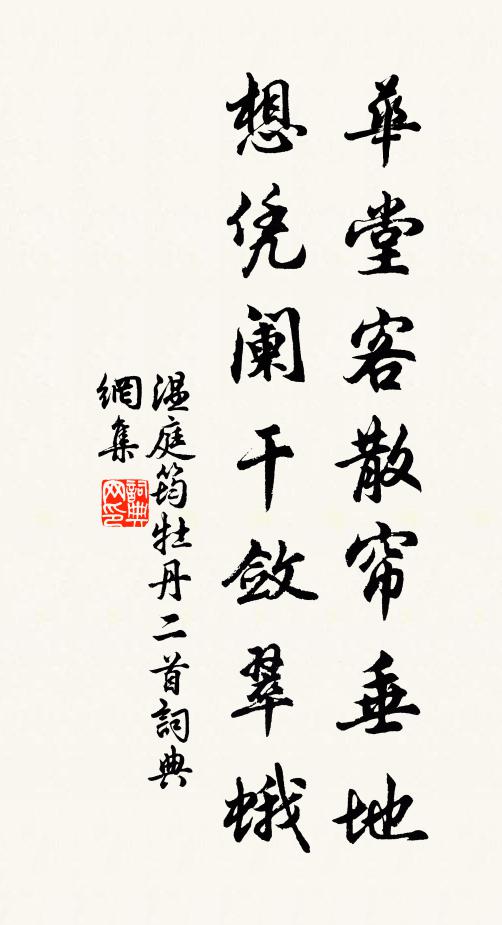 華堂客散帘垂地
想凭阑干斂翠蛾
温庭筠牡丹二首詞典
網集
詞典
网印